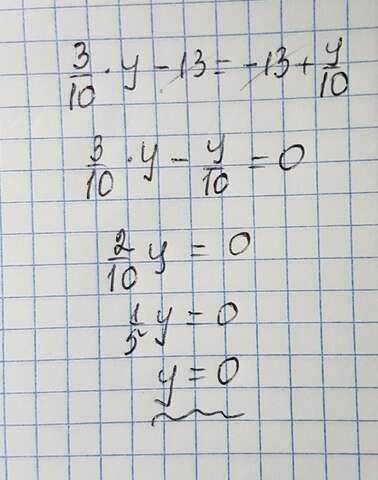 3/10 · y - 13 = -13 + y/10
3/10 · y - y/10 = 0
2/10 y = 0
1/5 y = 0
y = 0